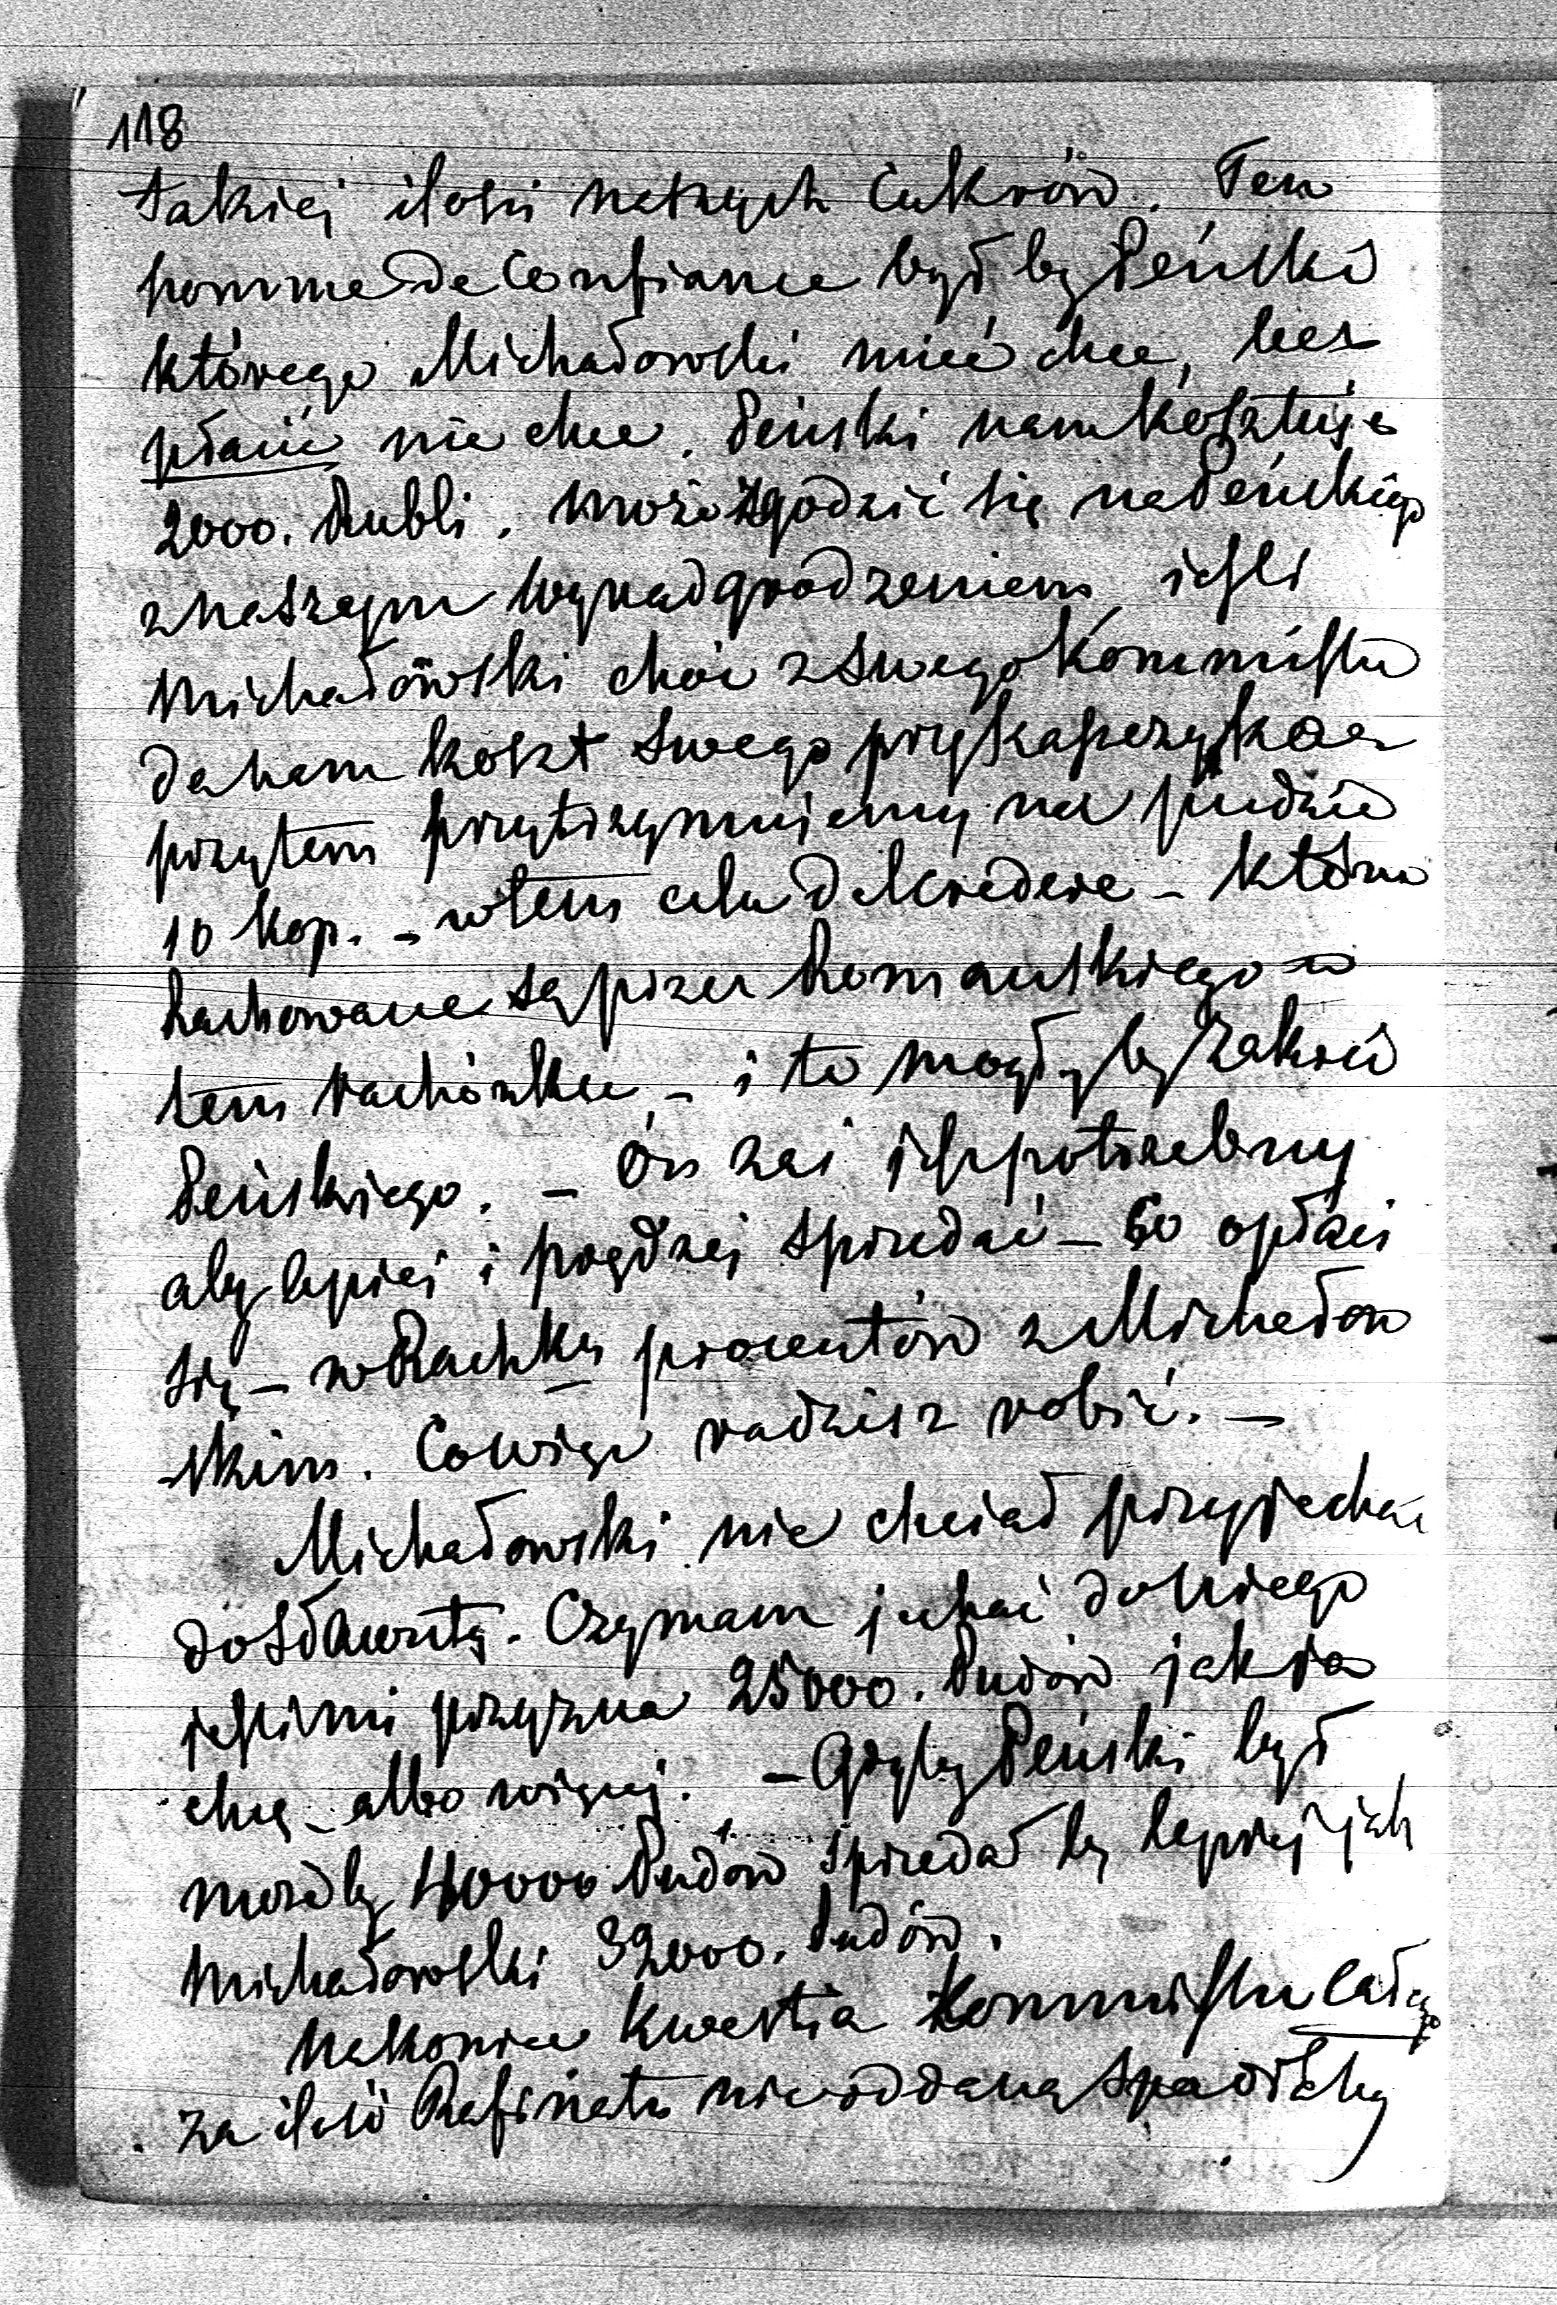 118
takiej ilości naszych Cukrów. Ten
homme de Confiance był by Peński
którego Michałowski mieć chce, lecz
płacić nie chce. Peński nam kosztuje
2000. Rubli. Może zgodzić się na Peńskiego
z naszym wynadgrodzeniem jeśli
Michałowski choć z swego Kommissu
da nam koszt swego prykaszczyka
przytem przytrzymujemy na pudzie
10 kop. – w tem celu Delkredere – które
Rachowane są przez Romanskiego w
tem rachunku – i to mogły by zakryć
Peńskiego. – On zaś jest potrzebny
aby lepiej i prędzej sprzedać – Co opłaci
się – w Rachku procentów z Michałow
-skim. Co więc radzisz robić. –
Michałowski nie chciał przyjechać
do Sławuty. Czy mam jechać do niego
jeśli mi przyzna 25000. Pudów jak ja
chcę – albo więcej. – Gdyby Peński był
może by 40000 Pudów sprzedał by lepiej jak
Michałowski 32000. Pudów.
Nakoniec Kwestia Kommissu całego
za ilość Rafinatu nie oddaną